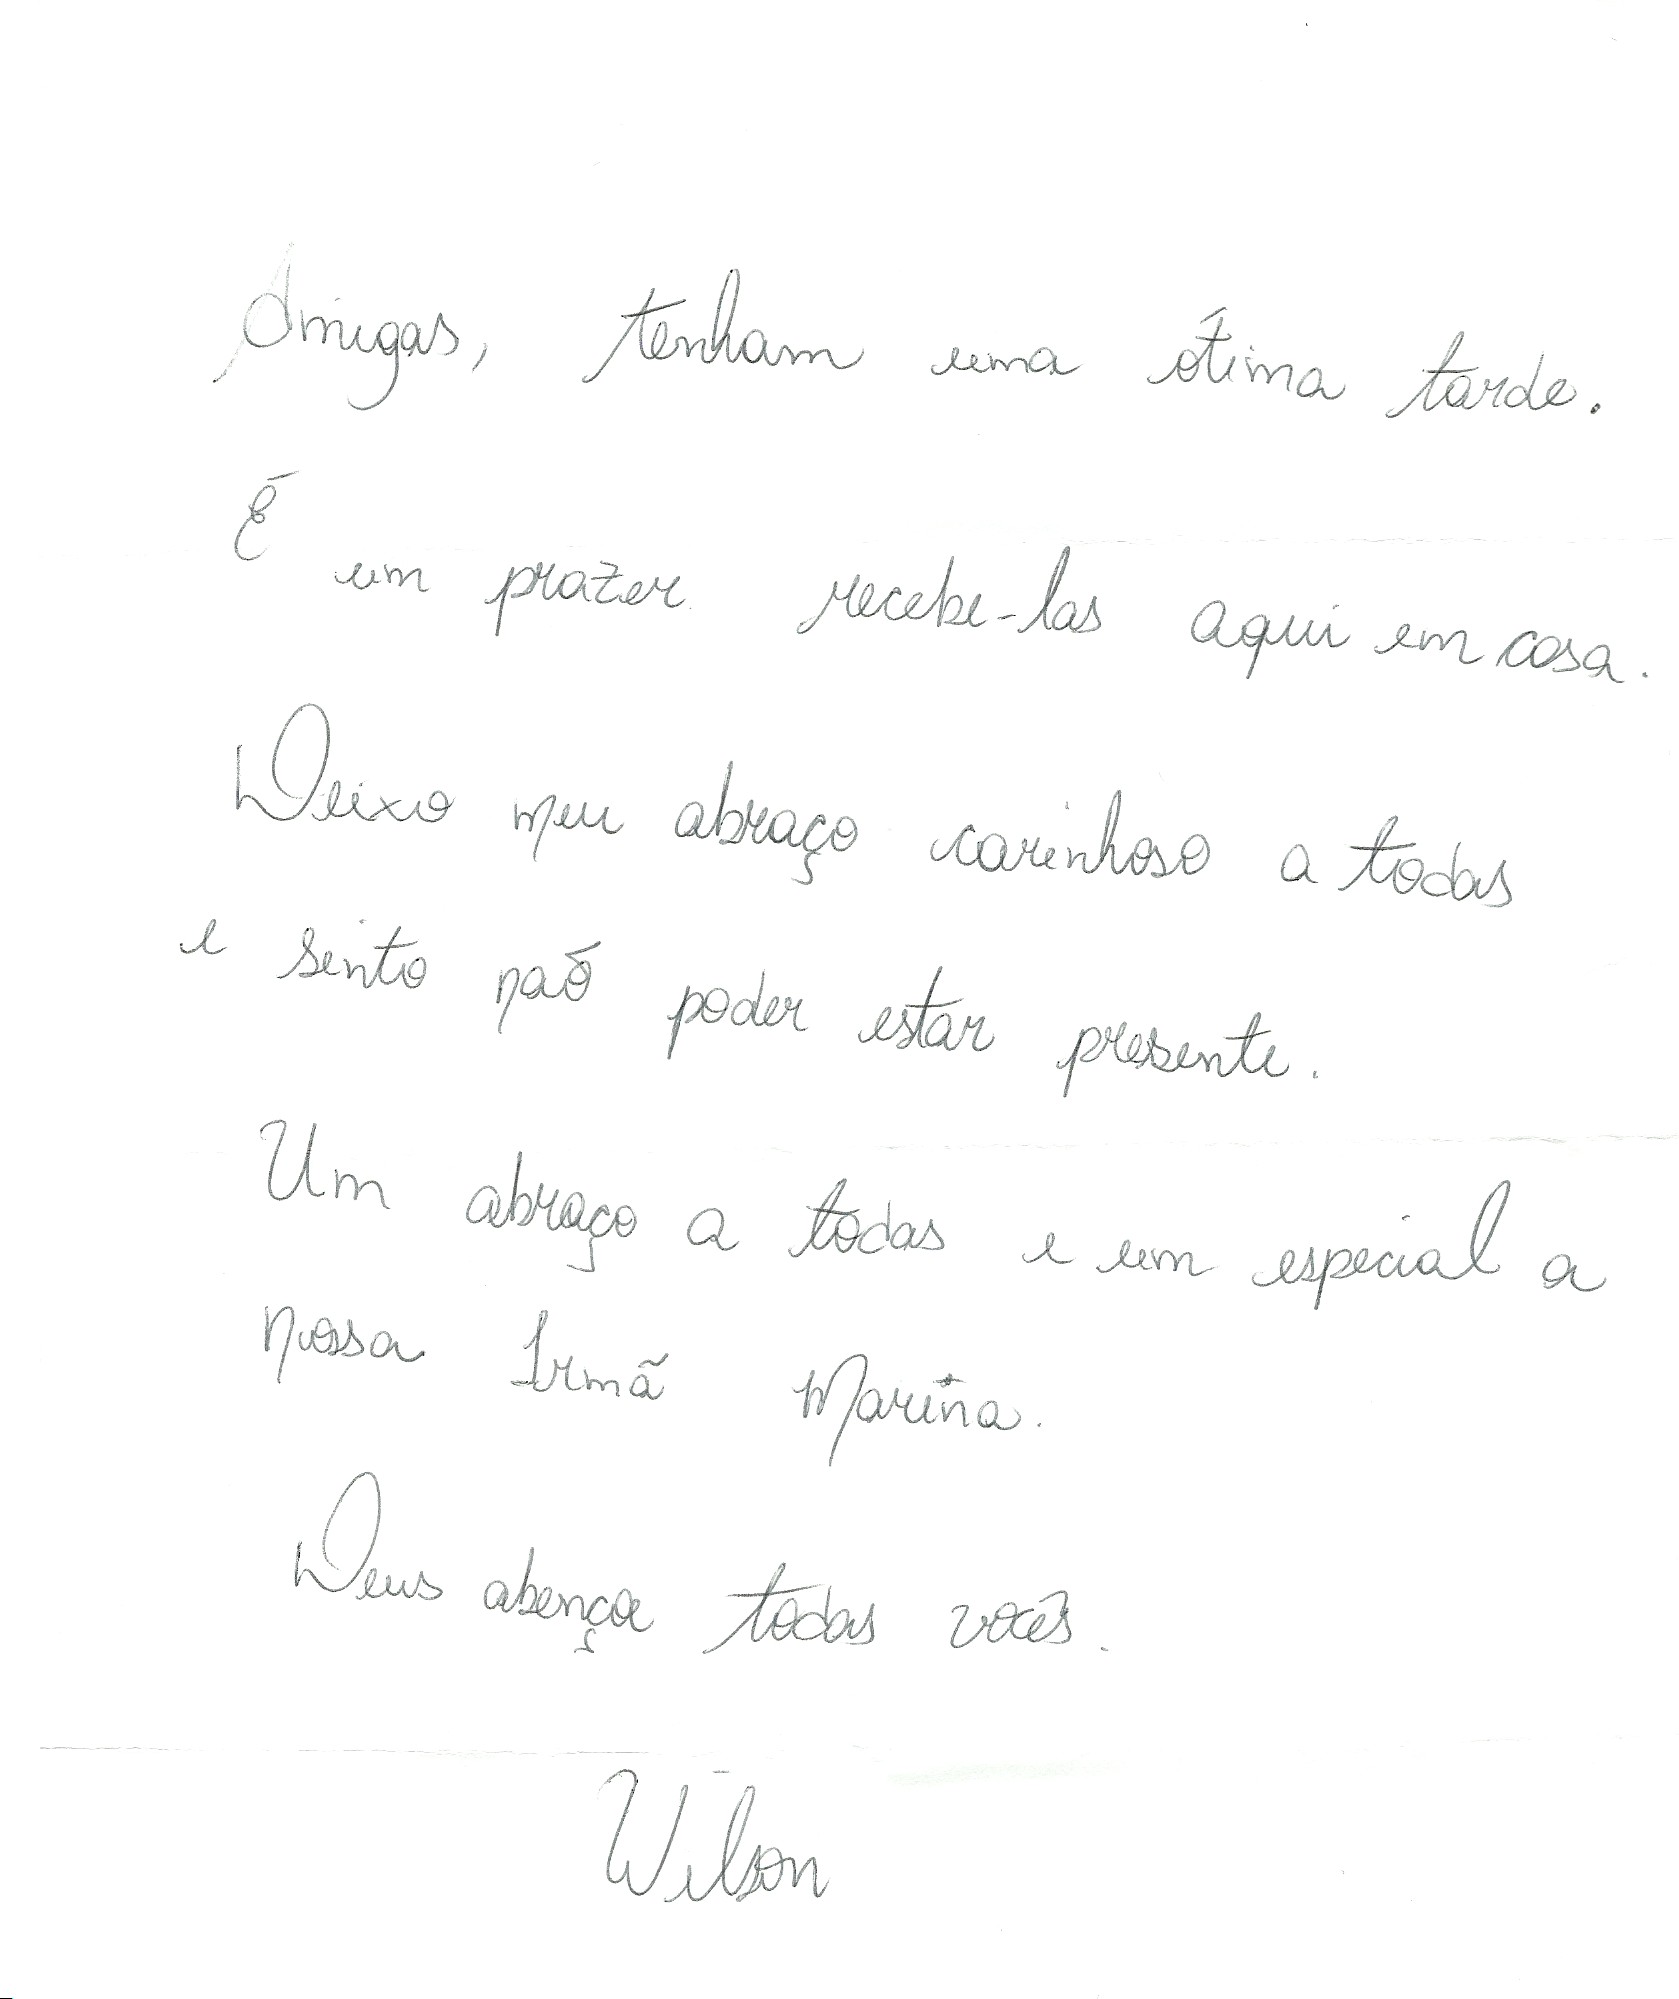 Amigas, tenham uma ótima tarde.
É um prazer recebe-las aqui em casa.
Deixo meu abraço carinhoso a todas
e sinto não poder estar presente.
Um abraço a todas e um especial a
nossa Irmã Marina.
Deus abençoe todas vocês.
Wilson